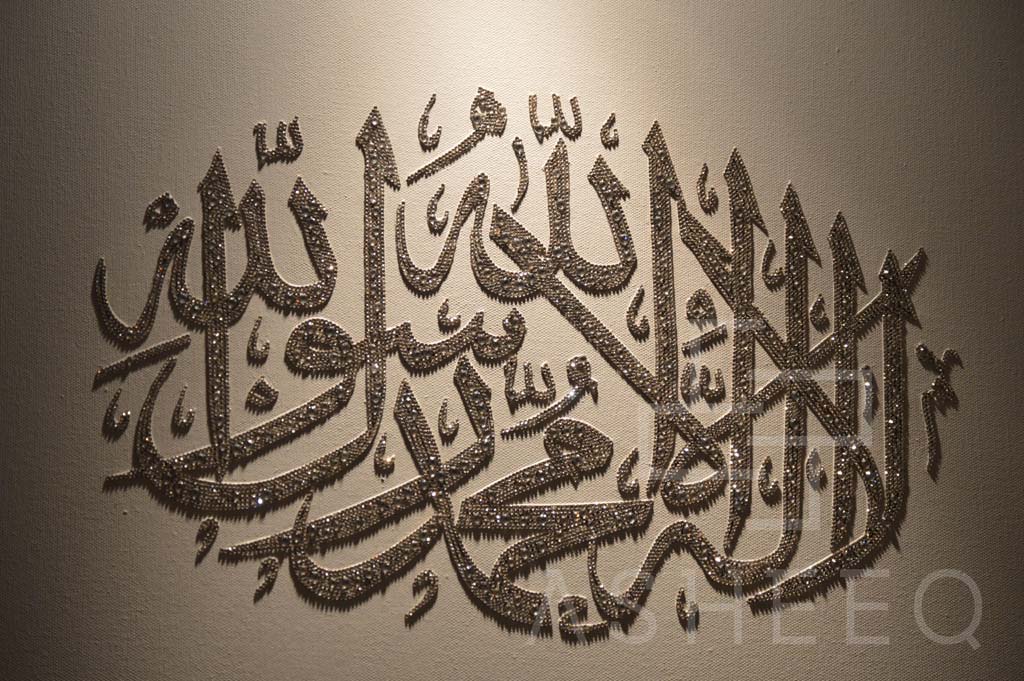 لا إله إلا الله محمد رسول الله
ASHEEQ